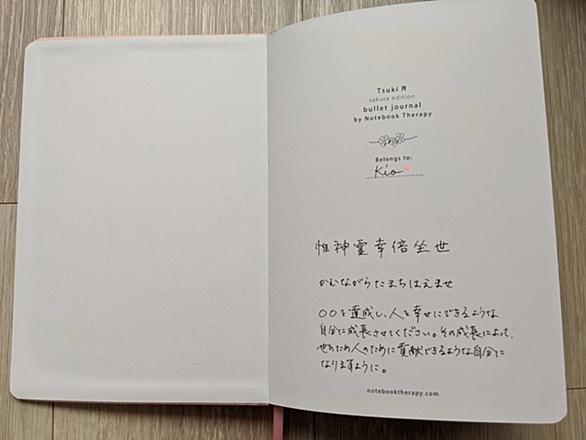 Tsuki 月
sakura edition
bullet journal
by Notebook Therapy
Belongs to:
Kio
惟神霊幸倍坐世
かむながらたまちはえませ
〇〇を達成し、人を幸せにできるような
自分に成長させてください。その成長によって、
世のため人のために貢献できるような自分に
なりますように。
notebooktherapy.com